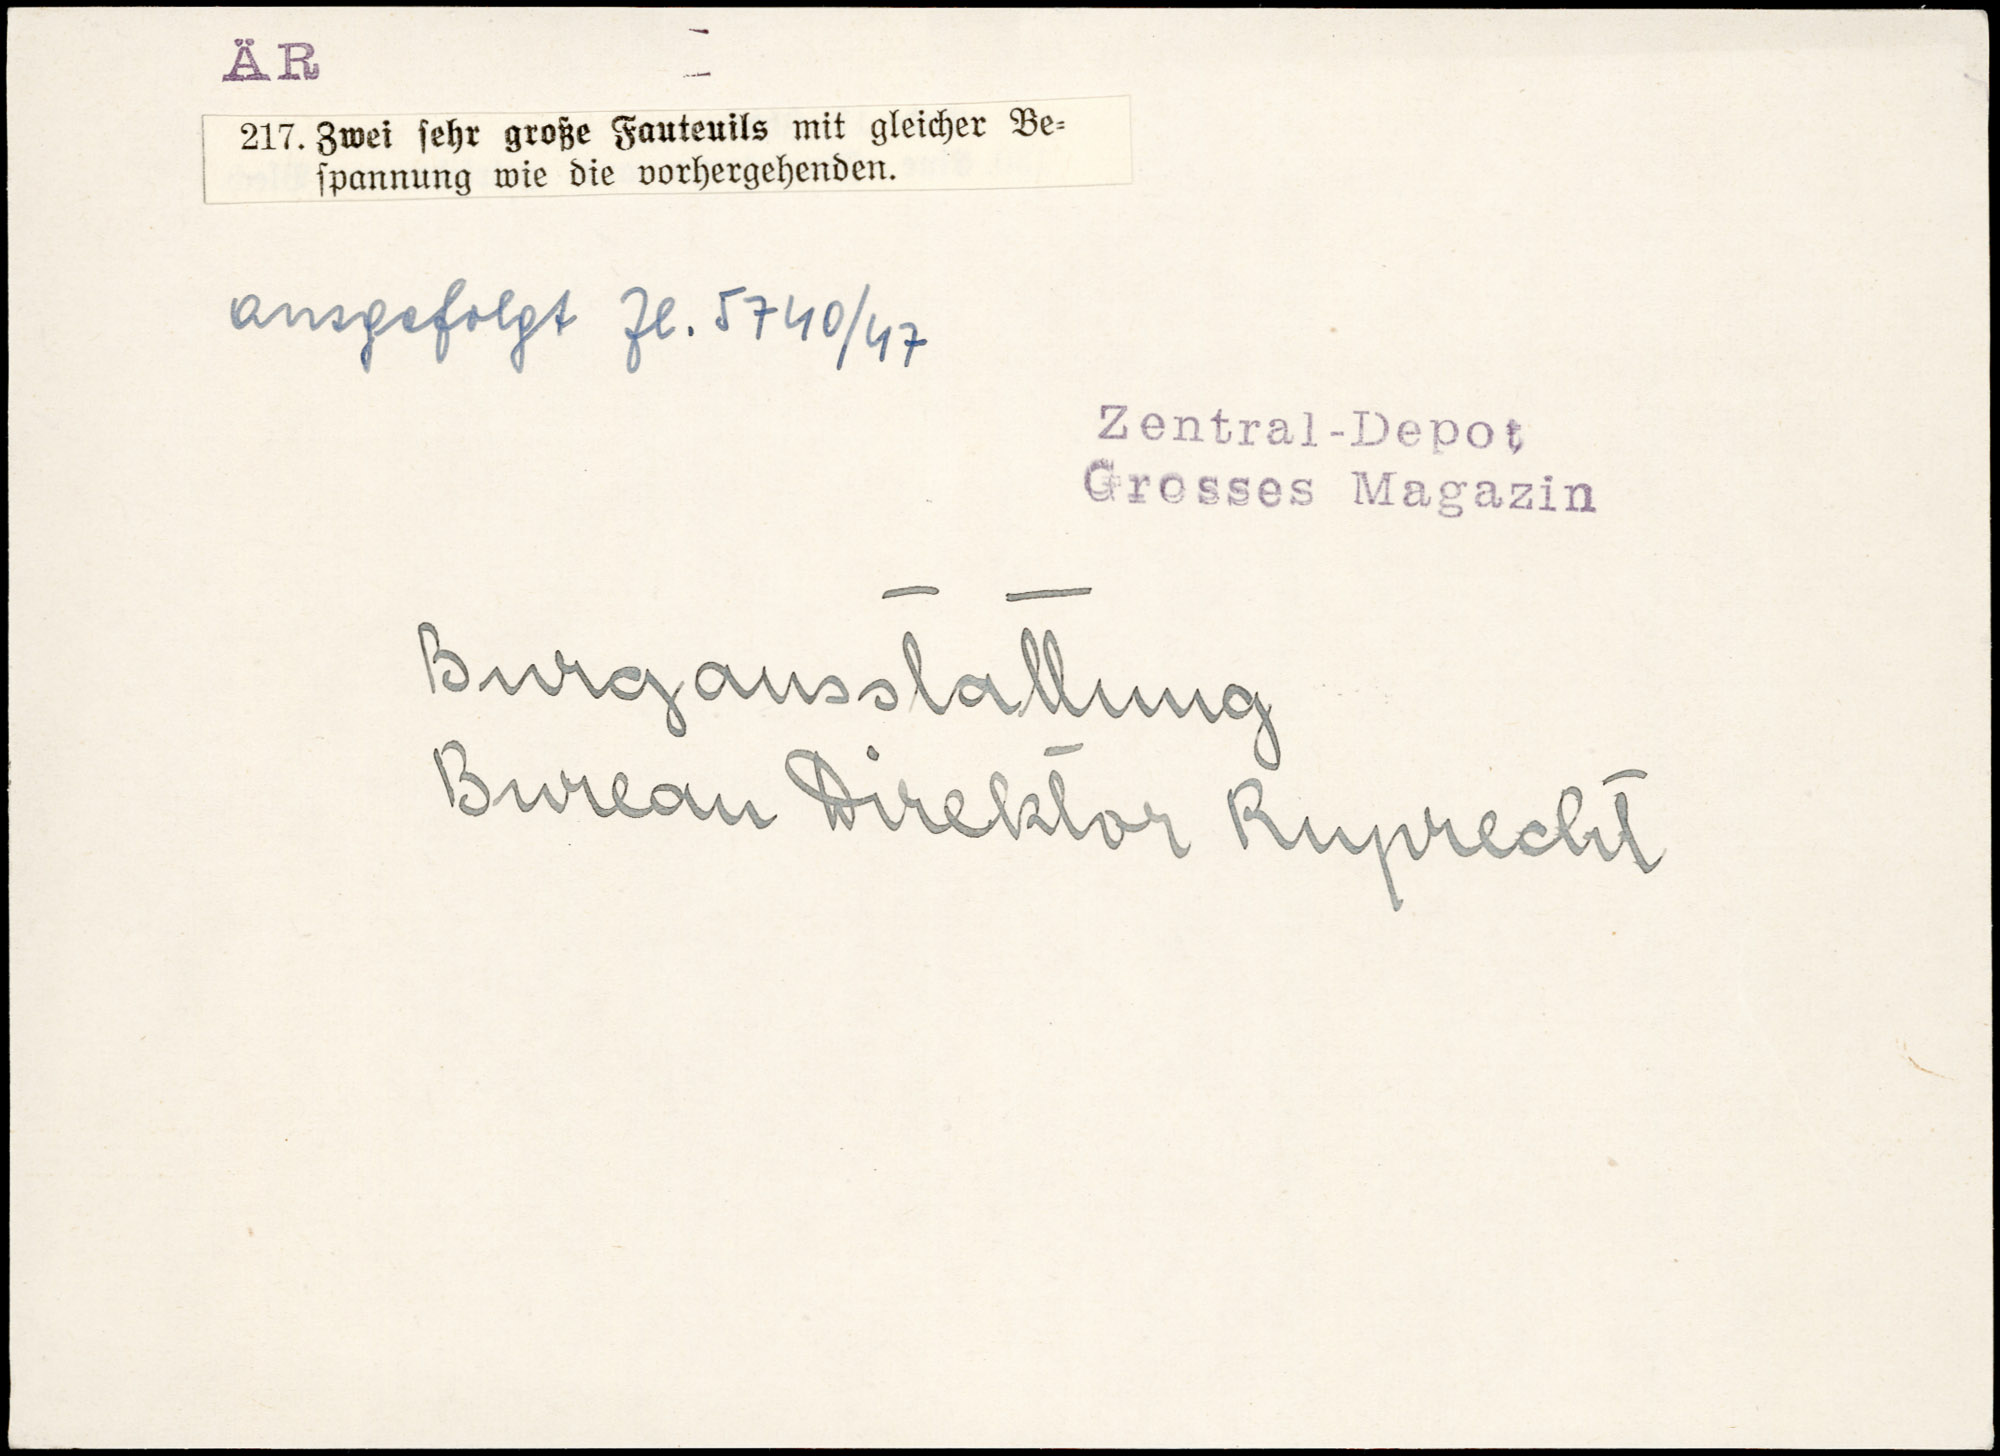 ÄR
217. Zwei sehr große Fauteuils mit gleicher Be-
spannung wie die vorhergehenden.
ausgefolgt Zl. 5740/47
Zentral-Depot,
Grosses Magazin
Burgausstattung
Bureau Direktor Ruprecht